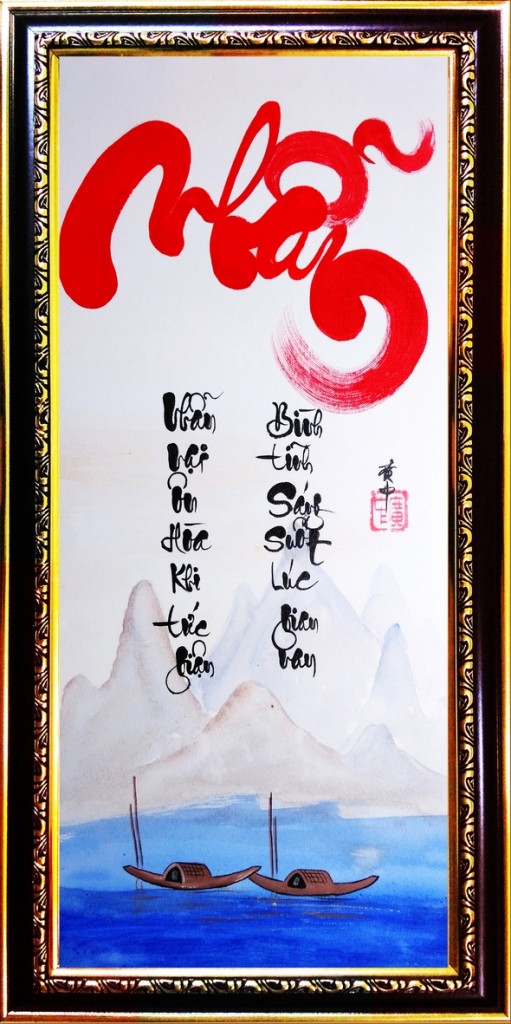 Nhẫn
Nhẫn
Nại
Ôn
Hòa
Khi
tức
giận
Bình
tĩnh
Sáng
Suốt
Lúc
gian
nan
黄中